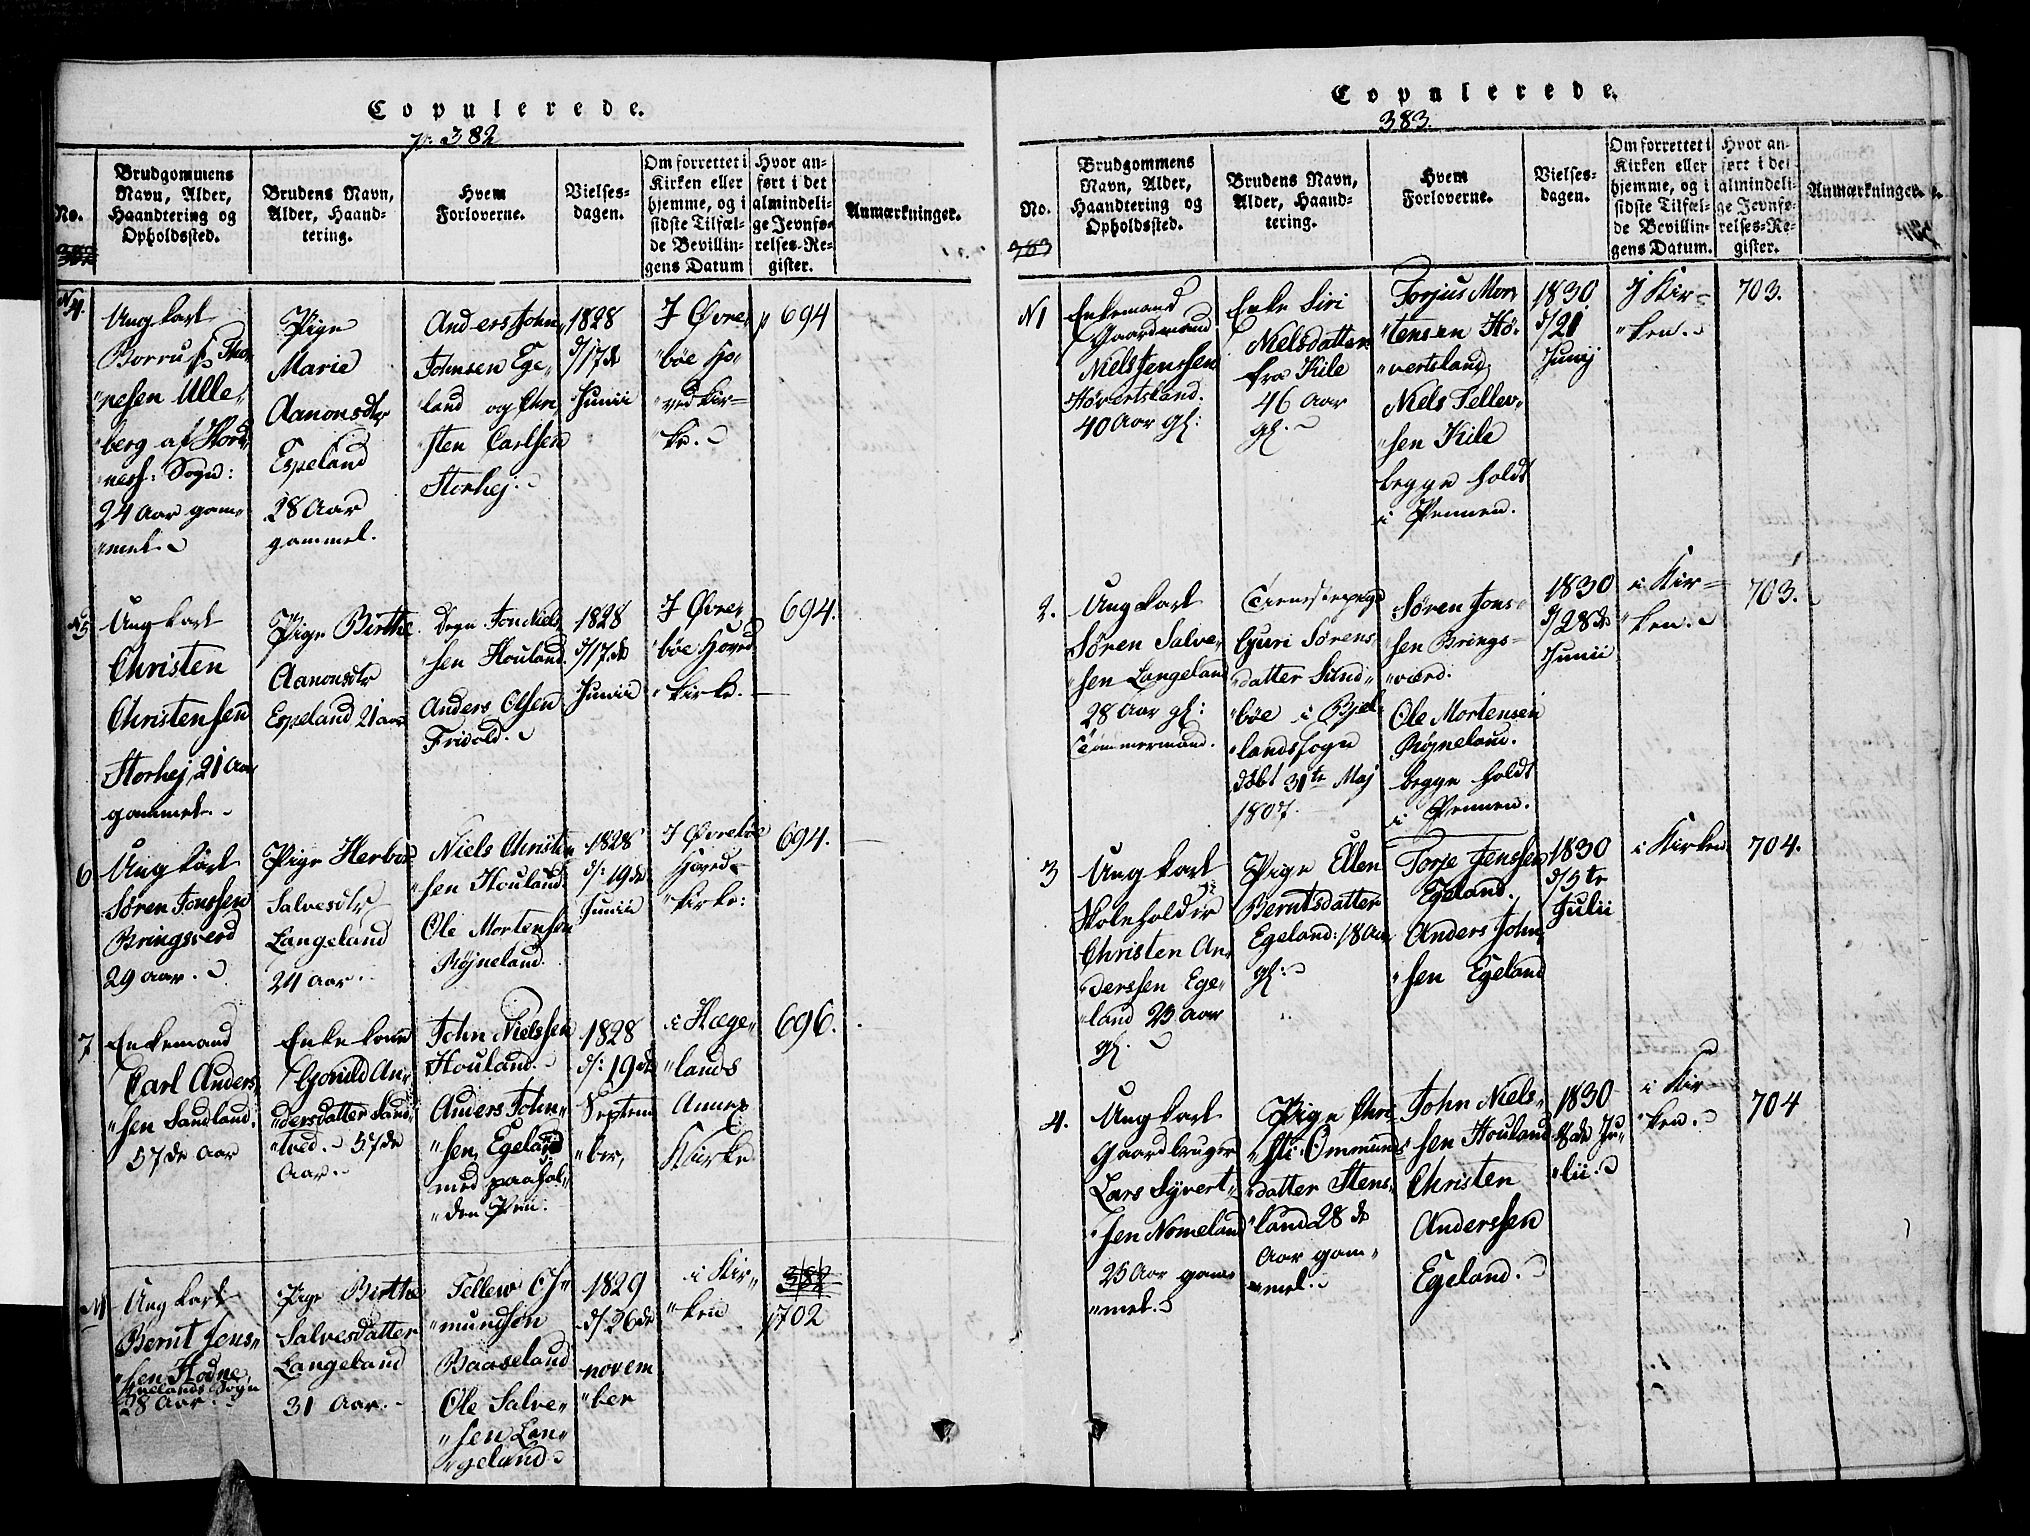 Copulerede.
p. 382
No.
382
Brudgommens
Navn, Alder,
Haandtering og
Opholdssted.
Brudens Navn,
Alder, Haand-
tering.
Hvem
Forloverne.
Vielses-
dagen.
Om forrettet i
Kirken eller
hjemme, og i
sidste Tilfæl-
de Bevillin-
gens Datum
Hvor an-
ført i det
almindeli-
ge Jevnfø-
relses-Re-
gister.
Anmærkninger.
N4.
Ungkarl
Borru
nesen Ulle-
berg af
ness: Sogn:
24 Aar gam-
mel.
Pige
Marie
Aanonsdtr
Espeland
28 Aar
gammel.
Anders John
Johnsen Ege-
land og Chri
sten Carlsen
Storhej.
1828
d/17de
Junii
I Øvre-
bøe Ho-
vedkir-
ke.
p 694
N5
Ungkarl
Christen
Christensen
Storhej, 21 Aar
gammel.
Pige Birthe
Aanonsdtr
Espeland 21 aar
Degn Jon Niel-
sen Houland.
Anders Olsen
Frivold.
1828
d/17de
Junii
I Øvre-
bøe Hoved
kirke.
694.
6
Ungkarl
Søren Jonssen
Bringsverd
29 aar.
Pige Herbor
Salvesdtr
Langeland
24 aar.
Niels Christen
sen Houland.
Ole Mortensen
Røjneland.
1828
d: 19de
Junii
I Øvrebøe
Hoved-
kirke:
694.
7
Enkemand
Carl Anders
sen Sandland.
57de Aar
Enkekone
Gonild An-
dersdatter Sand-
tved. 57de
Aar.
John Nielssen
Houland.
Anders John-
sen, Egeland
med paahol-
den Pen.
1828
d: 19de
Septem
ber,
i Hæge-
lands
Annex
Kirke
696.
N1
Ungkarl
Bernt Jens-
sen Hodne,
Sogn
28 Aar.
Pige Birthe
Salvesdatter
Langeland
31 Aar.
Tellew O
mundsøn
Baaseland
Ole Salve-
sen Lan-
geland.
1829
d/26de
novem
ber
i Kir-
ken
382
p702
Copulerede.
383.
No.
383
Brudgommens
Navn, Alder,
Haandtering og
Opholdssted.
Brudens Navn,
Alder, Haand-
tering.
Hvem
Forloverne.
Vielses-
dagen.
Om forrettet i
Kirken eller
hjemme, og i
sidste Tilfæl-
de Bevillin-
gens Datum.
Hvor an-
ført i det
almindeli-
ge Jevnfø-
relses-Re-
gister.
Anmærkninger.
N1
Enkemand
Gaardmand
Niels Jenssen
Høvertsland.
40 Aar gl:
Enke Siri
Nielsdatter
fra Kile
46 Aar
gl.
Torjus Mor
tensen Hø-
vertsland,
Niels Tellev-
sen Kile
begge holdt
i Pennen.
1830
d/21
Junij
I Kir-
ken.
703.
2.
Ungkarl
Søren Salve-
sen Langeland
28 Aar gl:
Tømmermand.
Tienestepige
Guri Sørens
datter Sund-
bøe i Bjel-
landssogn
døbt 31te Maj
1807.
Søren Jons-
sen Brings-
værd.
Ole Mortensen
Røjneland.
begge holdt
i Pennen.
1830
d/28de
Junii
i Kir-
ken.
703.
3
Ungkarl
Skoleholder
Christen An-
derssen Ege-
land 25 Aar
gl.
Pige Ellen
Berntsdatter
Egeland: 18 Aar
gl:
Torje Jenssen
Egeland.
Anders John-
sen Egeland
1830
d/5te
Julii
i Kirken
704.
4.
Ungkarl
Gaardbruger
Lars Syvert-
sen Nomeland
25 Aar gam-
mel.
Pige Chri-
sti Ommunds
datter Stens-
land 28de
Aar gam-
mel.
John Niels-
sen Houland
Christen
Anderssen
Egeland.
1830
18de Ju-
lii.
i Kir-
ken.
704